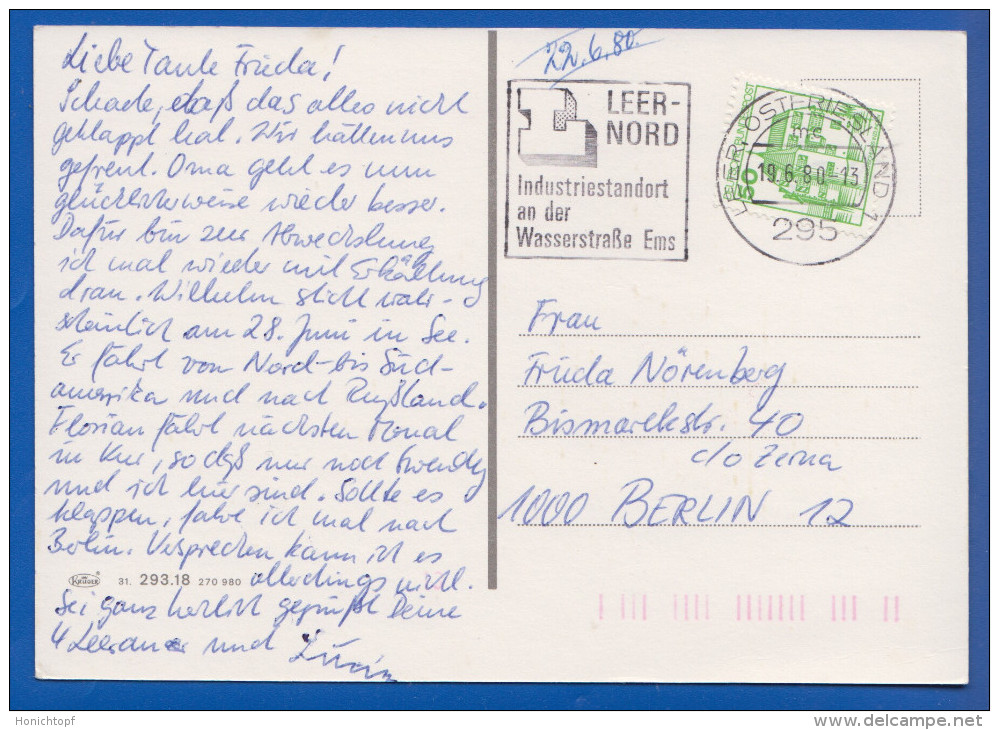 Liebe Tante Frieda!
Schade, daß das alles nicht
geklappt hat. Wir hätten uns
gefreut. Oma geht es nun
glücklicherweise wieder besser.
Dafür bin zur Abwechslung
ich mal wieder mit Erkältung
dran. Wilhelm sticht wahr-
scheinlich am 28. Juni in See.
Er fährt von Nord- bis Süd-
amerika und nach Rußland.
Florian fährt nächsten Monat
in Kur, so daß nur noch
und ich hier sind. Sollte es
klappen, fahre ich mal nach
Berlin. Versprechen kann ich es
allerdings nicht.
Sei ganz herzlich gegrüßt Deine
4 Leeraner und
KRÜGER
31. 293.18 270 980
22.6.80.
LEER-
NORD
Industriestandort
an der
Wasserstraße Ems
LEER, OSTFRIESLAND 1
mc
19.6.80-13
295
50
Frau
Frieda Nörenberg
Bismarckstr. 40
c/o Zerna
1000 BERLIN 12
Honichtopf
delcampe.net